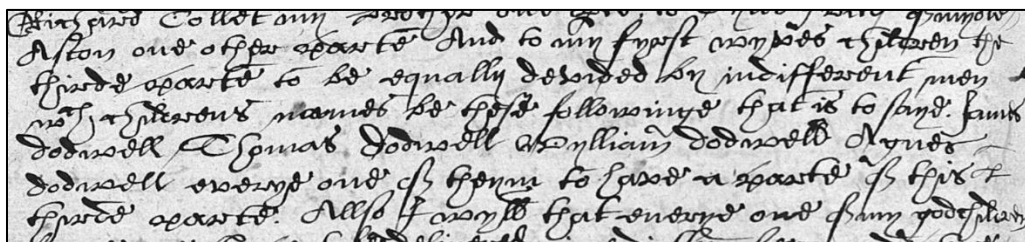 Richard Collet my brother one
Aston one other parte And to my fyrst wyves children the
thirde parte to be equally devided by indifferent men
wch childrens names be these followinge that is to saye. James
dodwell Thomas dodwell Wylliam dodwell Agnes
dodwell everye one of theym to have a parte of this
thirde parte. Allso I wyll that everye one of my godchildren